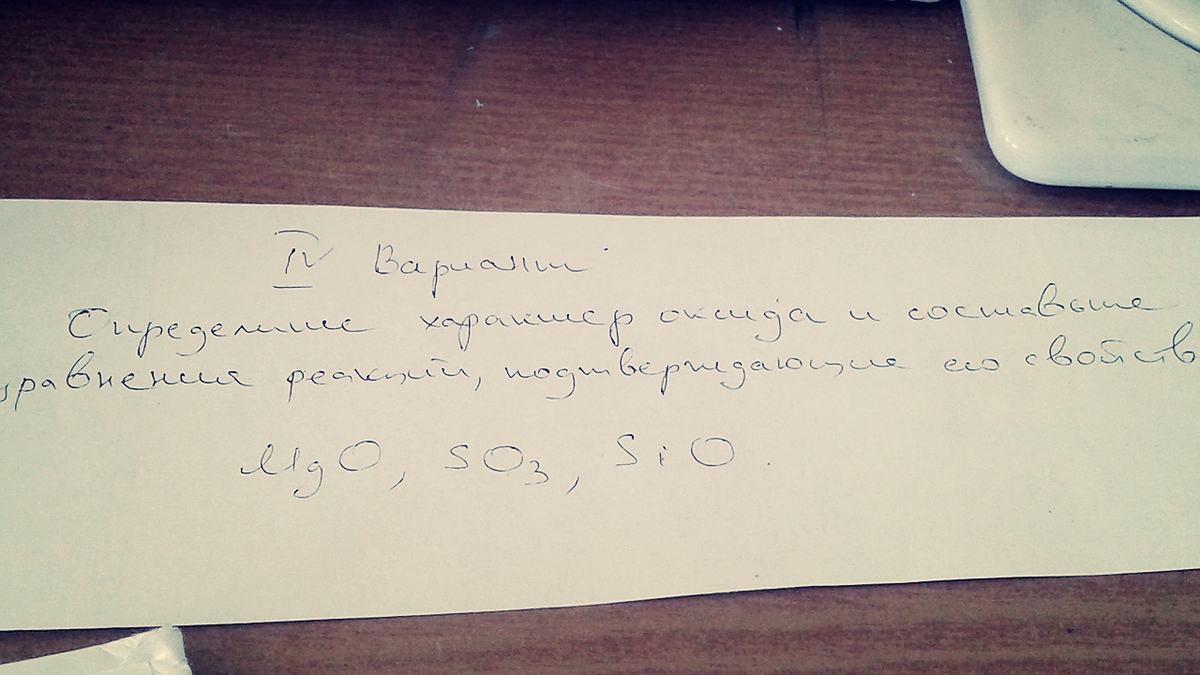 IV Вариант
Определите характер оксида и составьте
уравнения реакций, подтверждающие его свойств
MgO, SO₃, SiO.